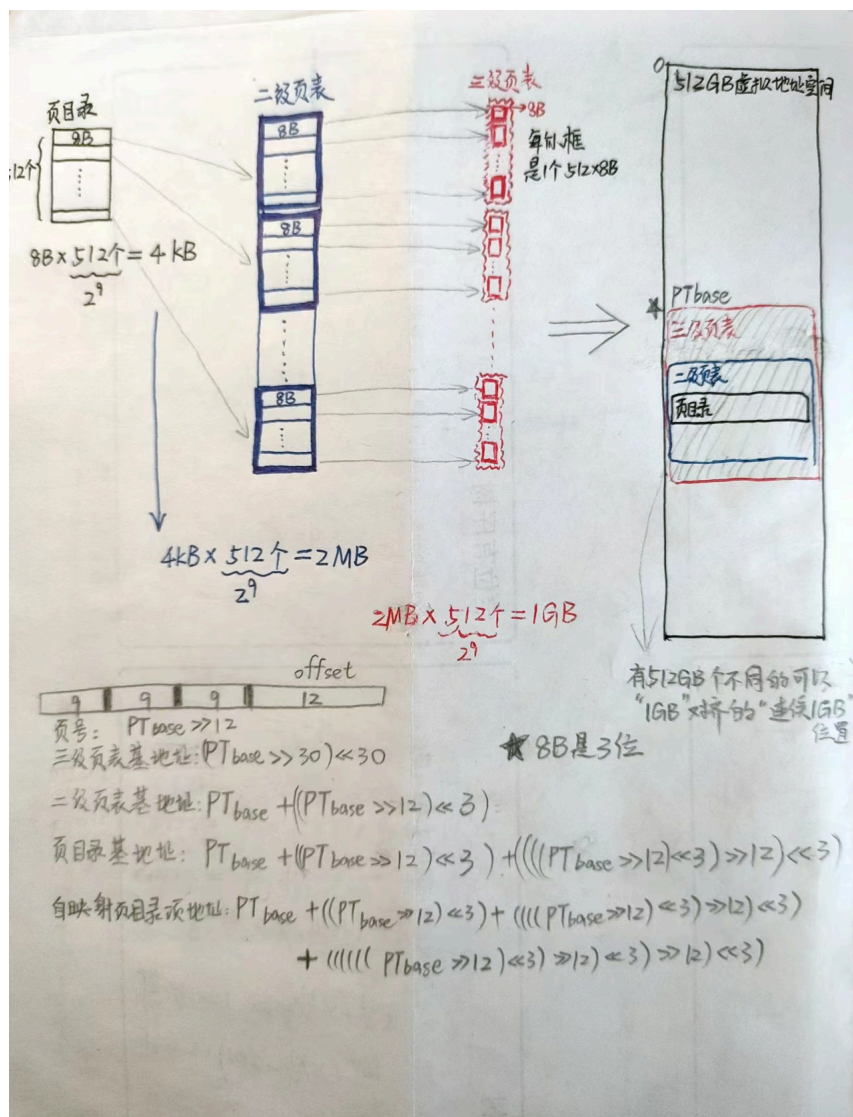 页目录
8B
512个
8B × 512个 = 4kB
2^9
二级页表
8B
8B
8B
4kB × 512个 = 2MB
2^9
三级页表
→8B
每个小框
是1个512×8B
2MB × 512个 = 1GB
2^9
0
512GB虚拟地址空间
PTbase
三级页表
二级页表
页目录
有512GB个不同的可以
"1GB"对齐的"连续1GB"
位置
offset
9 9 9 12
页号: PTbase >> 12
三级页表基地址: (PTbase >> 30) << 30
★ 8B是3位
二级页表基地址: PTbase + ((PTbase >> 12) << 3)
页目录基地址: PTbase + ((PTbase >> 12) << 3) + ((((PTbase >> 12) << 3) >> 12) << 3)
自映射页目录项地址: PTbase + ((PTbase >> 12) << 3) + ((((PTbase >> 12) << 3) >> 12) << 3)
+ ((((((PTbase >> 12) << 3) >> 12) << 3) >> 12) << 3)